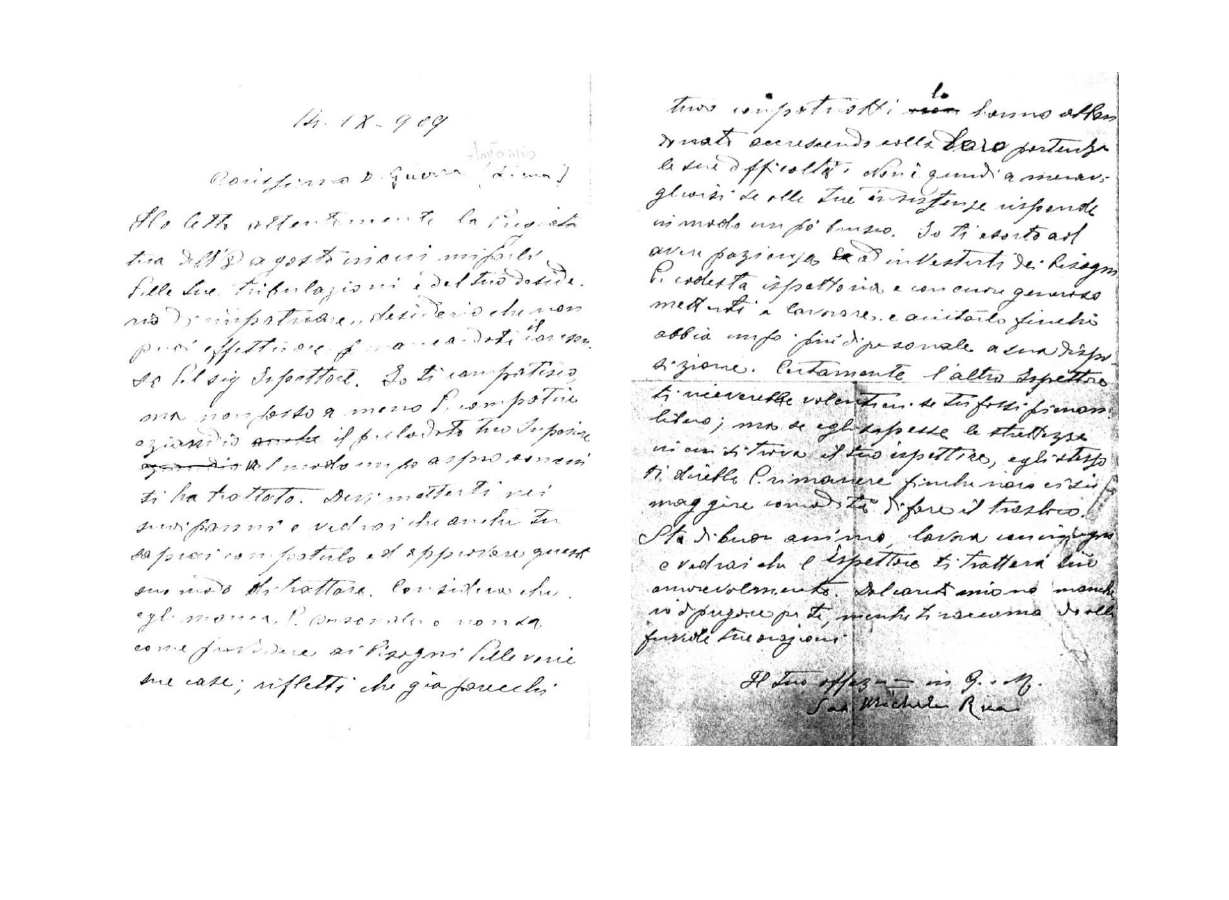 14. IX - 909
Carissimo D. Guerra (Lima)
Ho letto attentamente la Pregiata
tua dell'8 agosto in cui mi parli
delle tue tribulazioni e del tuo deside-
rio di rimpatriare, desiderio che non
puoi effettuare mancandoti il consen-
so del sig Ispettore. Io ti compatisco,
ma non posso a meno di compatire
eziandio anche il prelodato tuo Superiore
eziandio del modo un po aspro con cui
ti ha trattato. Devi metterti nei
suoi panni e vedrai che anche tu
saprai compatirlo ed approvare questo
suo modo di trattare. Considera che
egli manca di personale e non sa
come provvedere ai bisogni delle varie
sue case; rifletti che già parecchi
tuoi compatriotti non lo hanno abban
donato accrescendo colla loro partenza
le sue difficoltà. Non è quindi a meravi-
gliarsi se alle tue insistenze risponde
in modo un pò brusco. Io ti esorto ad
avere pazienza ed investirti dei bisogni
di codesta ispettoria e con cuore generoso
metterti a lavorare e aiutarlo finchè
abbia un po' più di personale a sua dispo-
sizione. Certamente l'altro Ispettore
ti riceverebbe volentieri se tu fossi
libero; ma se egli sapesse le strettezze
in cui si trova il tuo ispettore, egli stesso
ti direbbe di rimanere finchè non ci sia
maggiore comodità di fare il trasloco.
Sta di buon animo, lavora con impegno
e vedrai che l'ispettore ti tratterà bene
amorevolmente. Dal canto mio no manche
rò di pregare per te, mentre ti raccomando alle
fervide tue orazioni
Il tuo affez in G. e M.
Sac Michele Rua